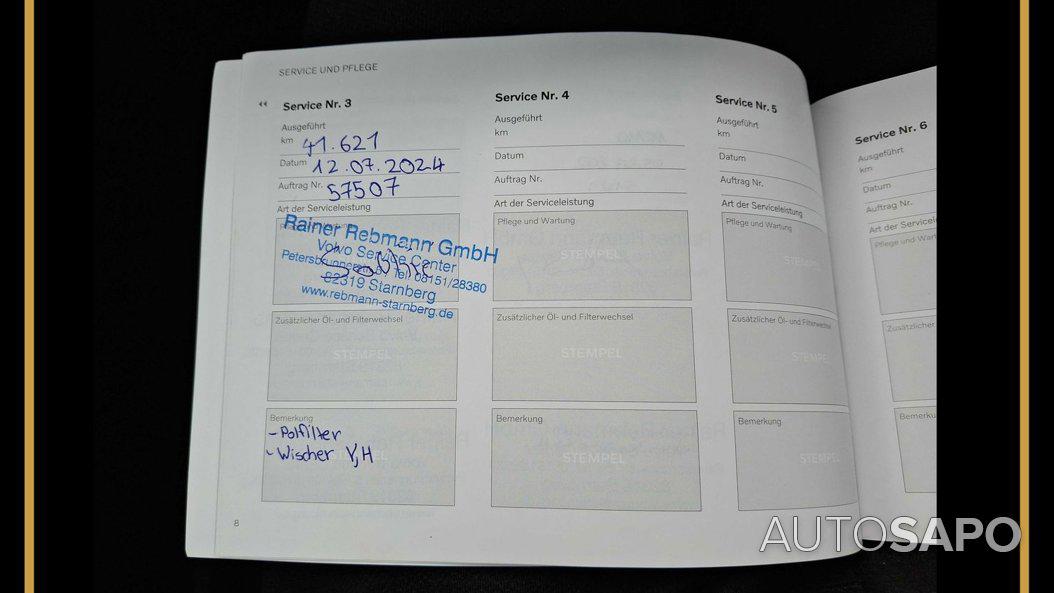 SERVICE UND PFLEGE
Service Nr. 3
Ausgeführt
km 41.621
Datum 12.07.2024
Auftrag Nr. 57507
Art der Serviceleistung
Rainer Rebmann GmbH
Volvo Service Center
Tel. 08151/28380
82319 Starnberg
www.rebmann-starnberg.de
Zusätzlicher Öl- und Filterwechsel
STEMPEL
Bemerkung
- Polfilter
- Wischer V,H
8
Service Nr. 4
Ausgeführt
km
Datum
Auftrag Nr.
Art der Serviceleistung
Pflege und Wartung
STEMPEL
Zusätzlicher Öl- und Filterwechsel
STEMPEL
Bemerkung
STEMPEL
Service Nr. 5
Ausgeführt
km
Datum
Auftrag Nr.
Art der Serviceleistung
Pflege und Wartung
STEMPEL
Zusätzlicher Öl- und Filterwechsel
STEMPEL
Bemerkung
STEMPEL
Service Nr. 6
Ausgeführt
km
Datum
Auftrag Nr.
Art der
Pflege und
Zusätzlicher
AUTOSAPO